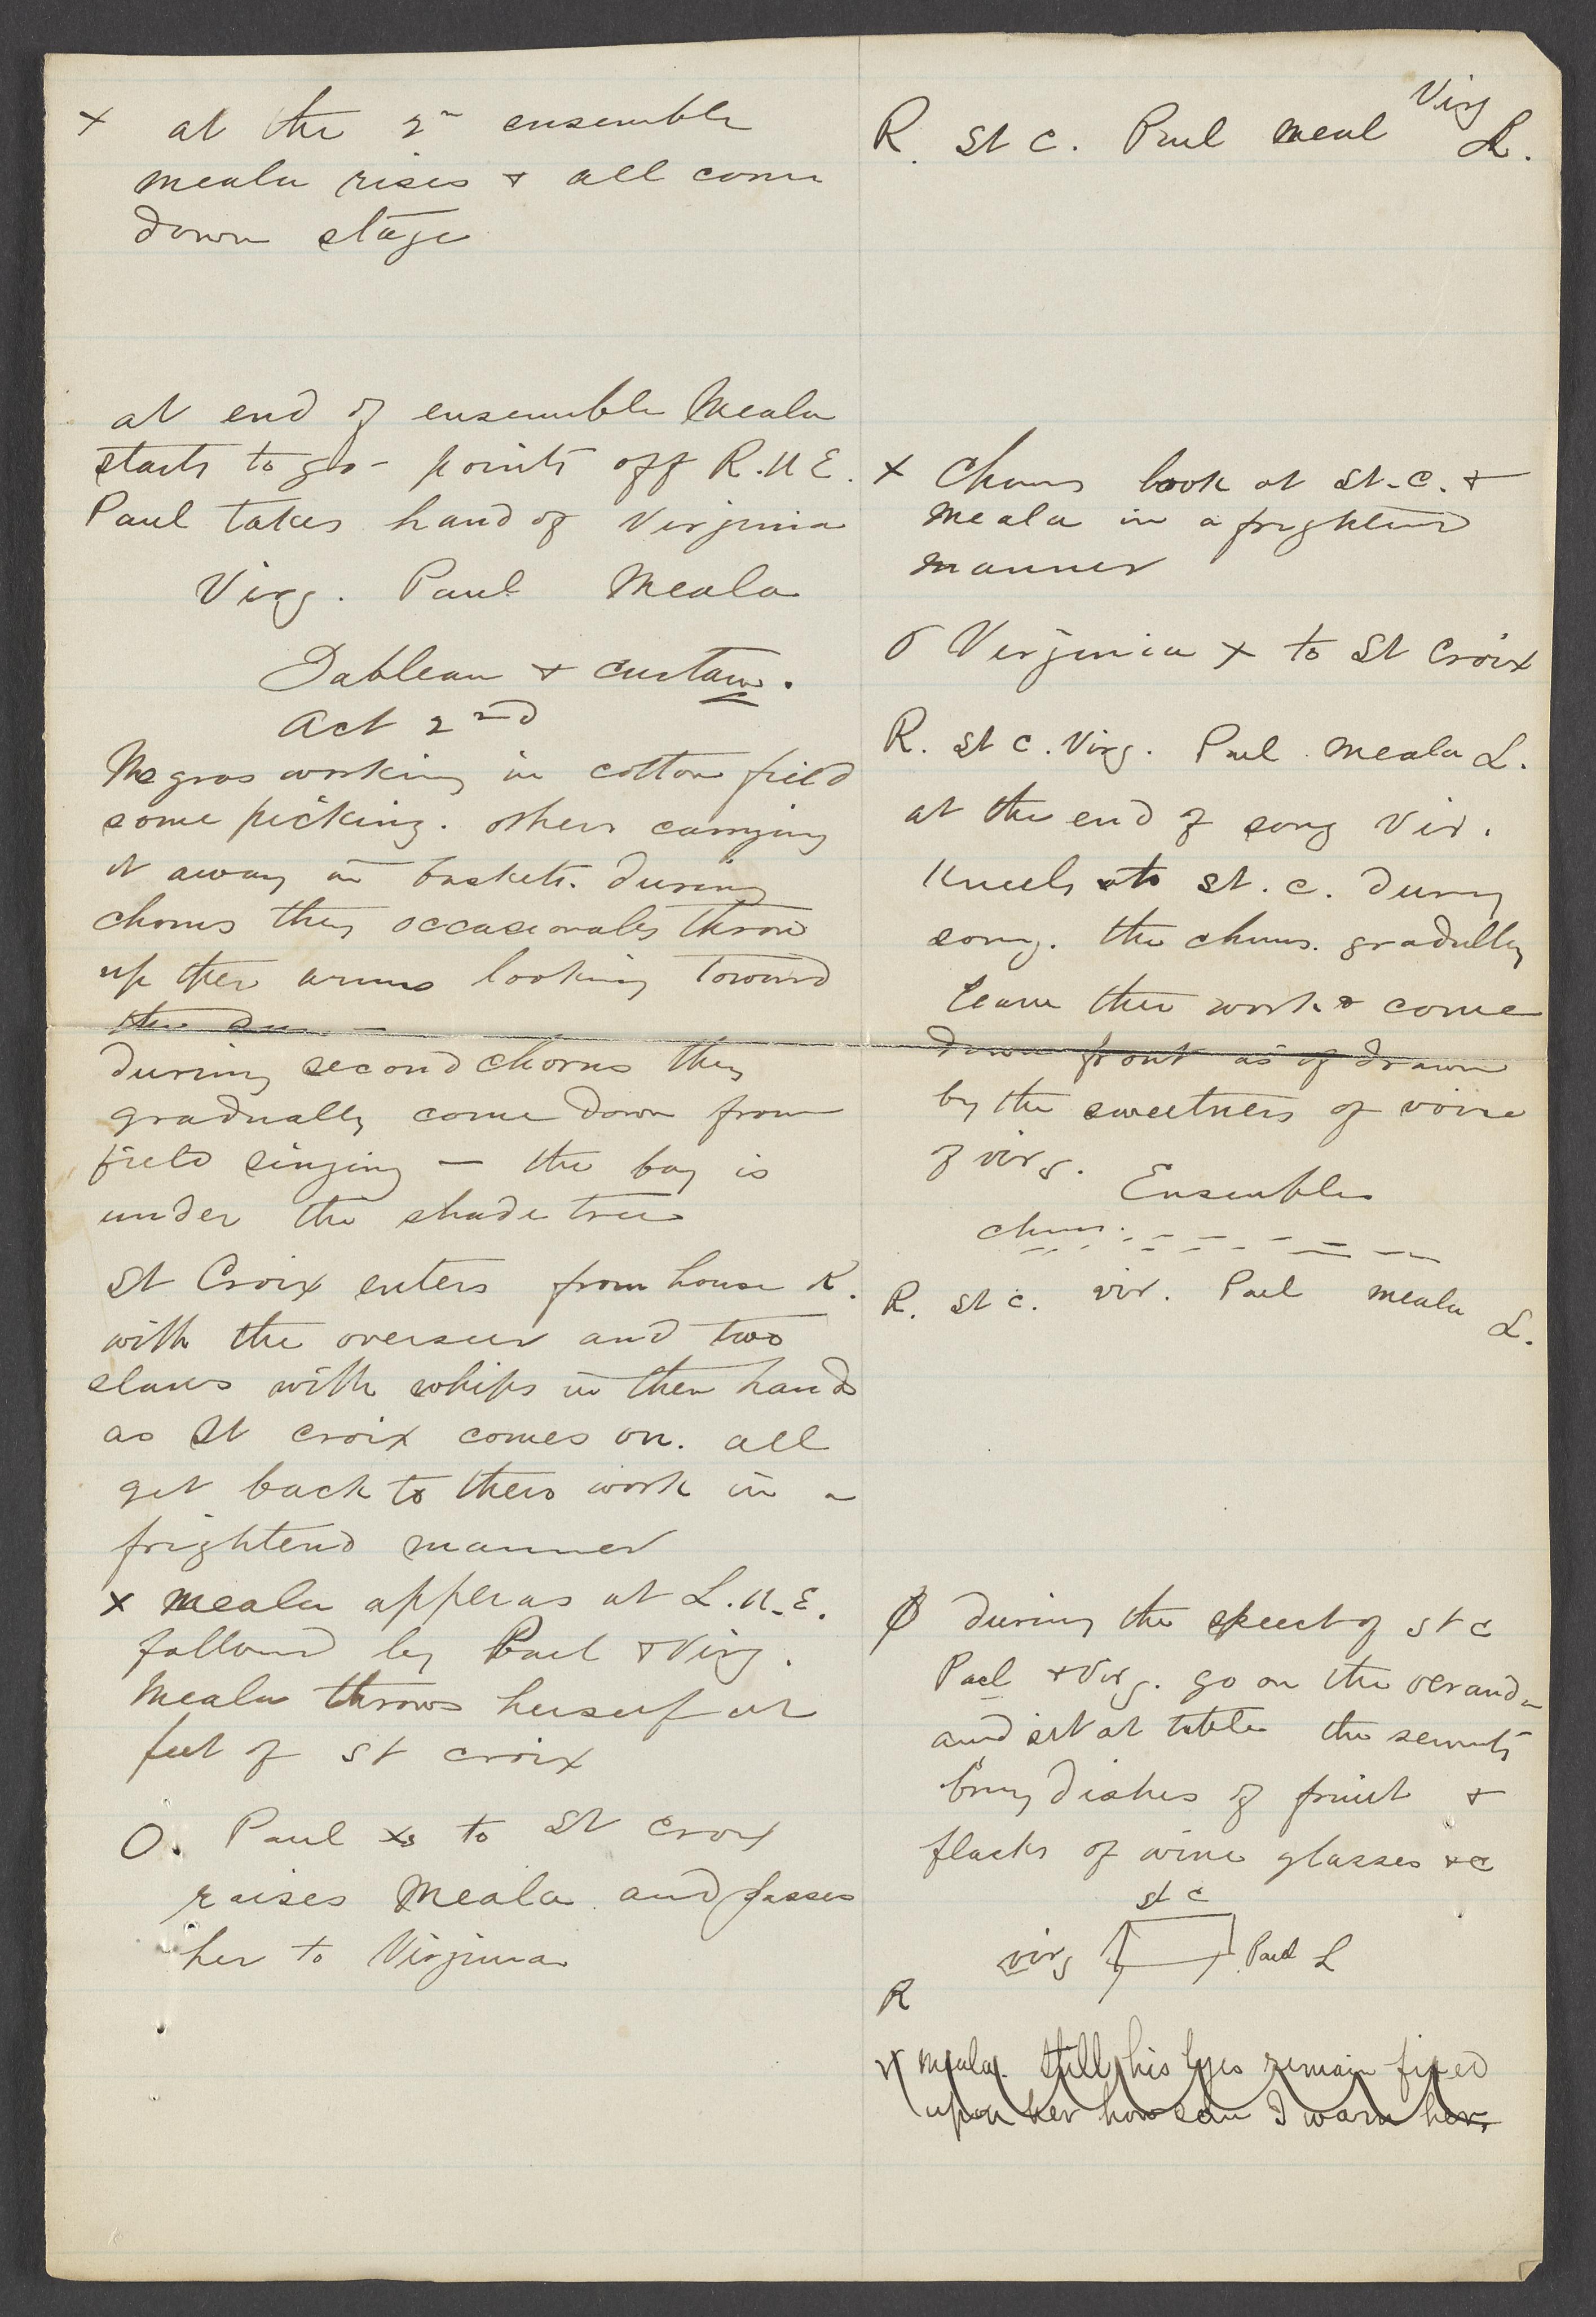 x at the 2n ensemble
Meala rises & all come
down stage
at end of ensemble Meala
starts to go - points off R.U.E.
Paul takes hand of Virginia
Virg. Paul Meala
Tableau & curtain.
Act 2nd
Negros working in cotton field
some picking. others carrying
it away in baskets. during
chorus they occasionaly throw
up their arms looking toward
the sun —
during second chorus they
gradually come down from
field singing — the boy is
under the shade tree
St Croix enters from house R.
with the overseer and two
slaves with whips in their hands
as St Croix comes on. all
get back to their work in a
frightend manner
x Meala apperas at L.U.E.
followed by Paul & Virg.
Meala throws herself at
feet of St Croix
O. Paul xs to St Croix
raises Meala and passes
her to Virginia
R. St C. Paul Meal Virg L.
x Chorus look at St. C. &
Meala in a frightend
manner
o Virginia x to St Croix
R. St C. Virg. Paul Meala L.
at the end of song Vir.
Kneels to St. C. During
song. the chorus. gradully
leave their work & come
down front as if drawn
by the sweetness of voice
of Virg.
Ensemble
chorus.
R. St C. Vir. Paul Meala L.
φ during the speech of St C
Paul & Virg. go on the veranda
and sit at table the servants
bring dishes of friut &
flasks of wine glasses &c
St C
Virg Paul L
R
x Meala. Still his Eyes remain fixed
upon her how can I warn her,